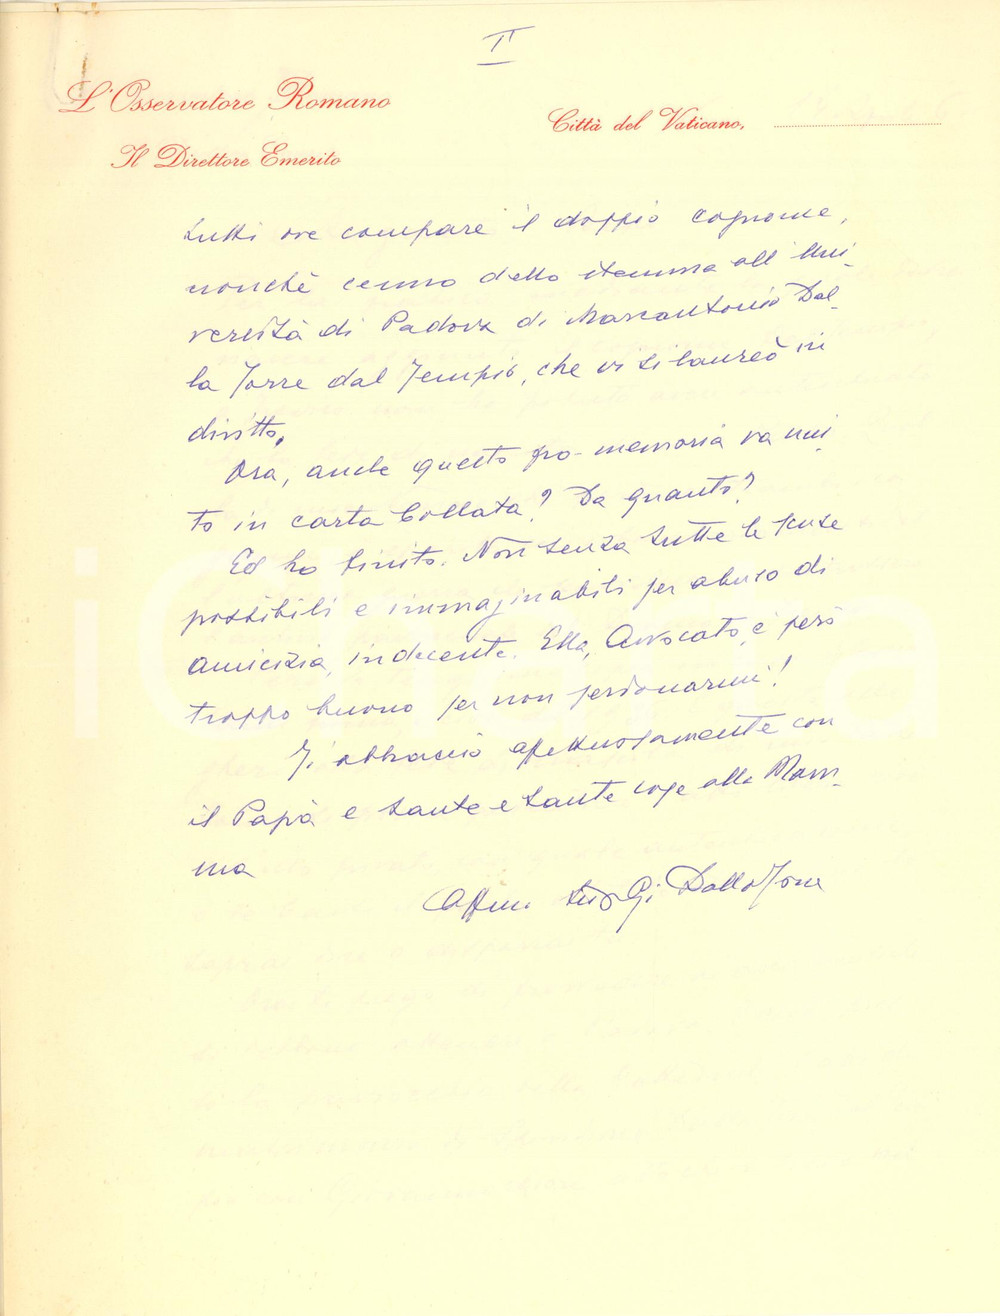 II
L'Osservatore Romano
Città del Vaticano,
Il Direttore Emerito
tutti ove compare il doppio cognome,
nonchè cenno dello stemma all'Uni-
versità di Padova di Marcantonio Dal-
la Torre dal Tempio, che vi si laureò in
diritto.
Ora, anche questo pro-memoria va uni-
to in carta bollata? Da quanto?
Ed ho finito. Non senza tutte le scuse
possibili e immaginabili per abuso di
amicizia, indecente. Ella, Avvocato, è però
troppo buono per non perdonarmi!
Ti abbraccio affettuosamente con
il Papà e tante e tante cose alla Mam-
ma
Aff.mo Dalla Torre
iCharta